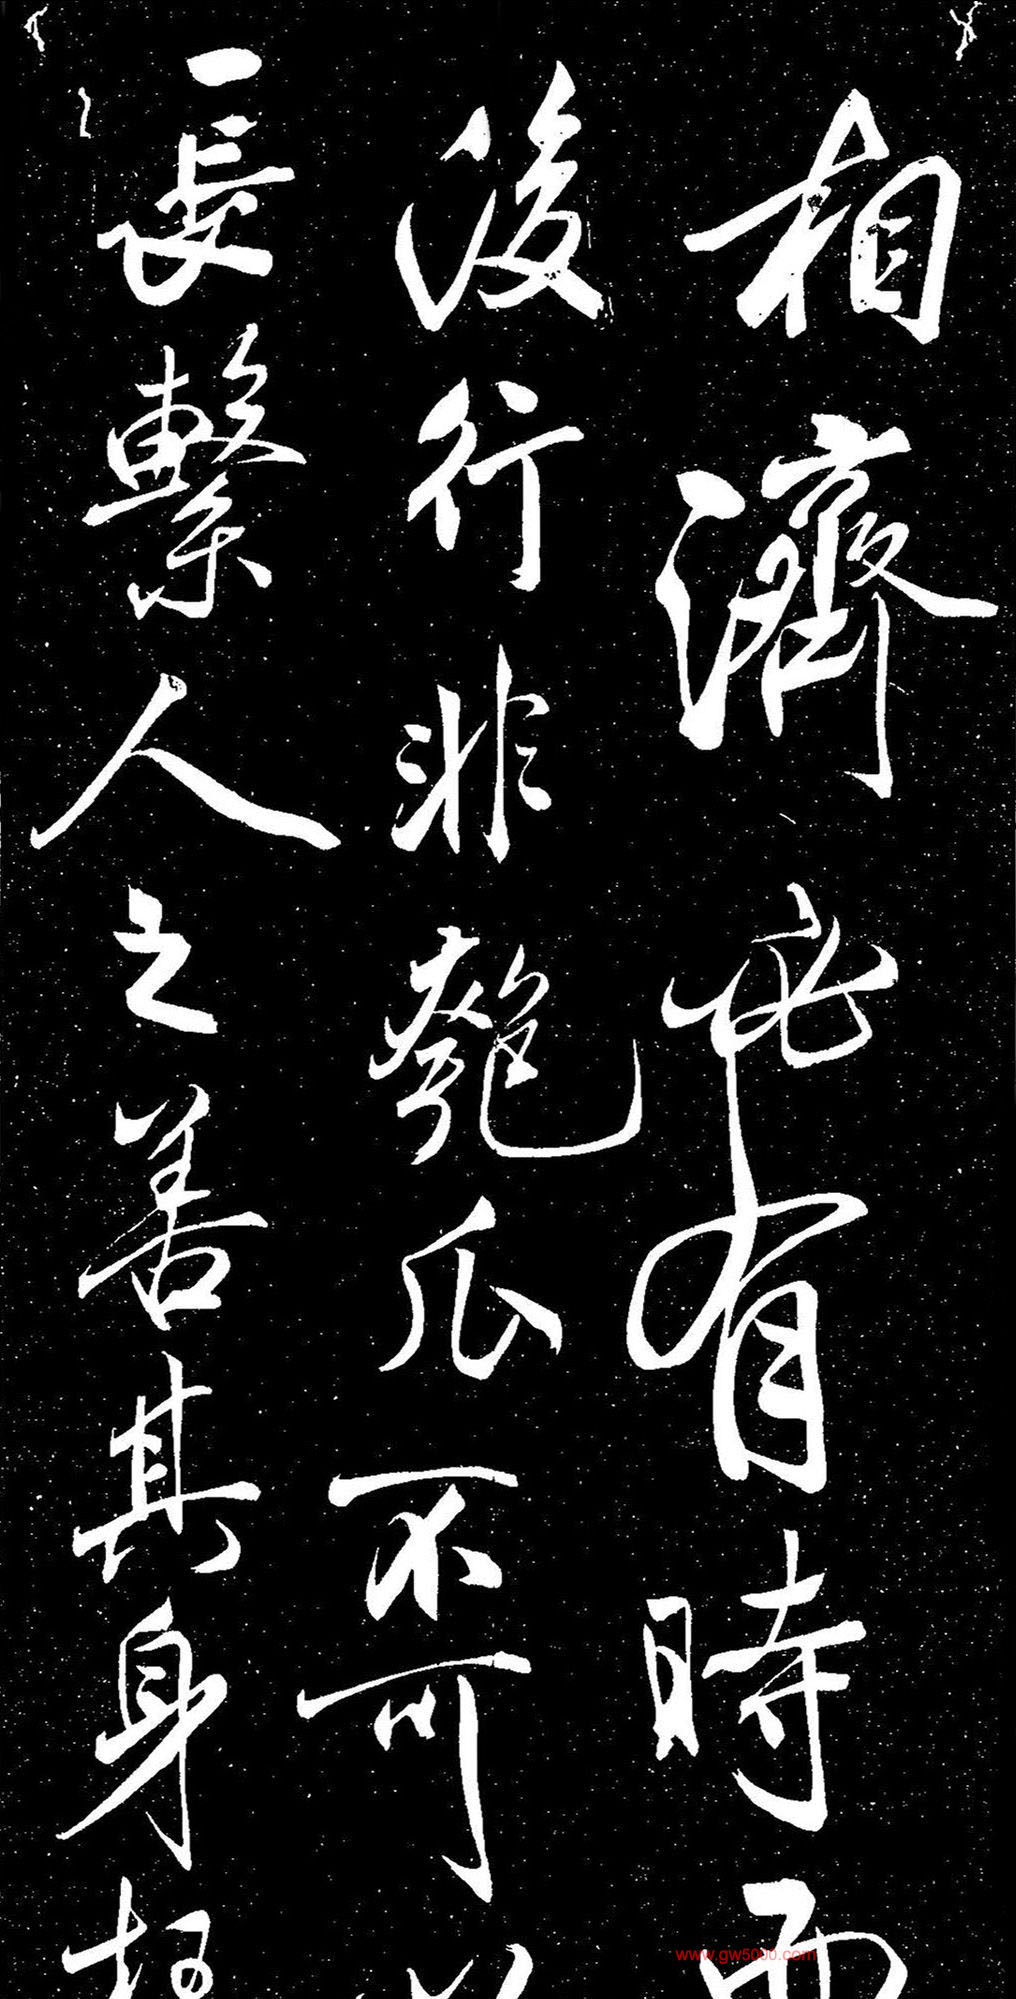 相濟必有時而
後行非匏瓜不可以
長繫人之善其身
www.gw5000.com